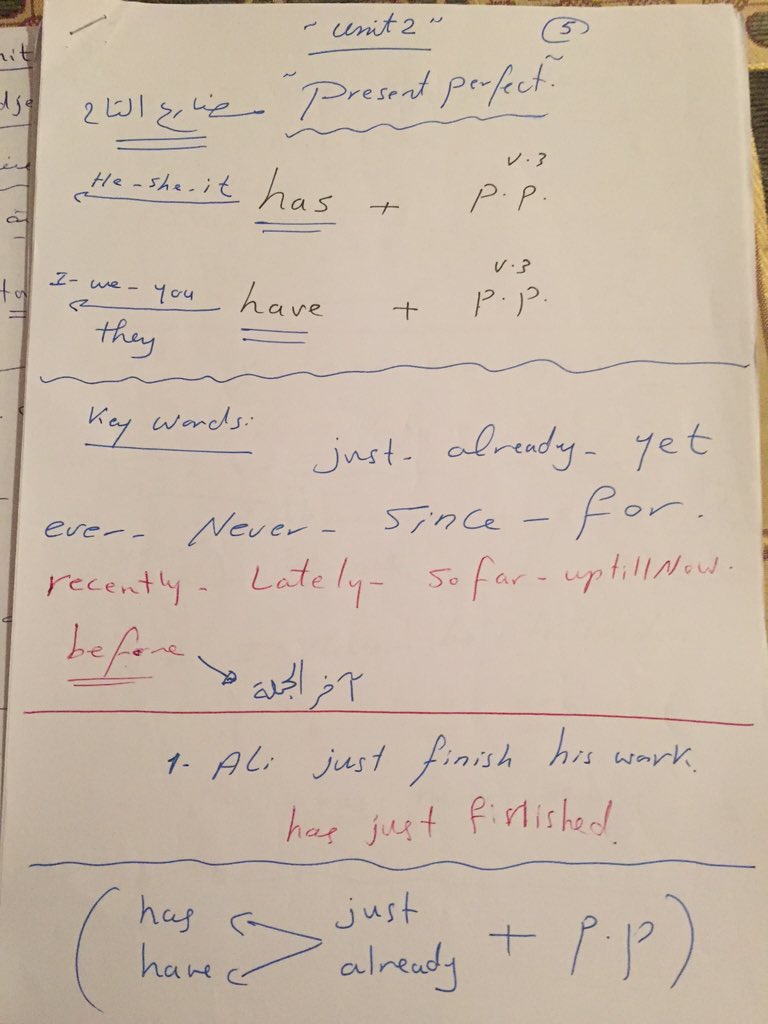 "Unit 2" 5
مضارع التام "Present perfect."
He - she - it has + p.p. v.3
I - we - you they have + p.p. v.3
Key words: just - already - yet
ever - Never - since - for.
recently - Lately - so far - uptill Now.
before آخر الجملة
1- Ali just finish his work.
has just finished.
( has just + p.p )
have already